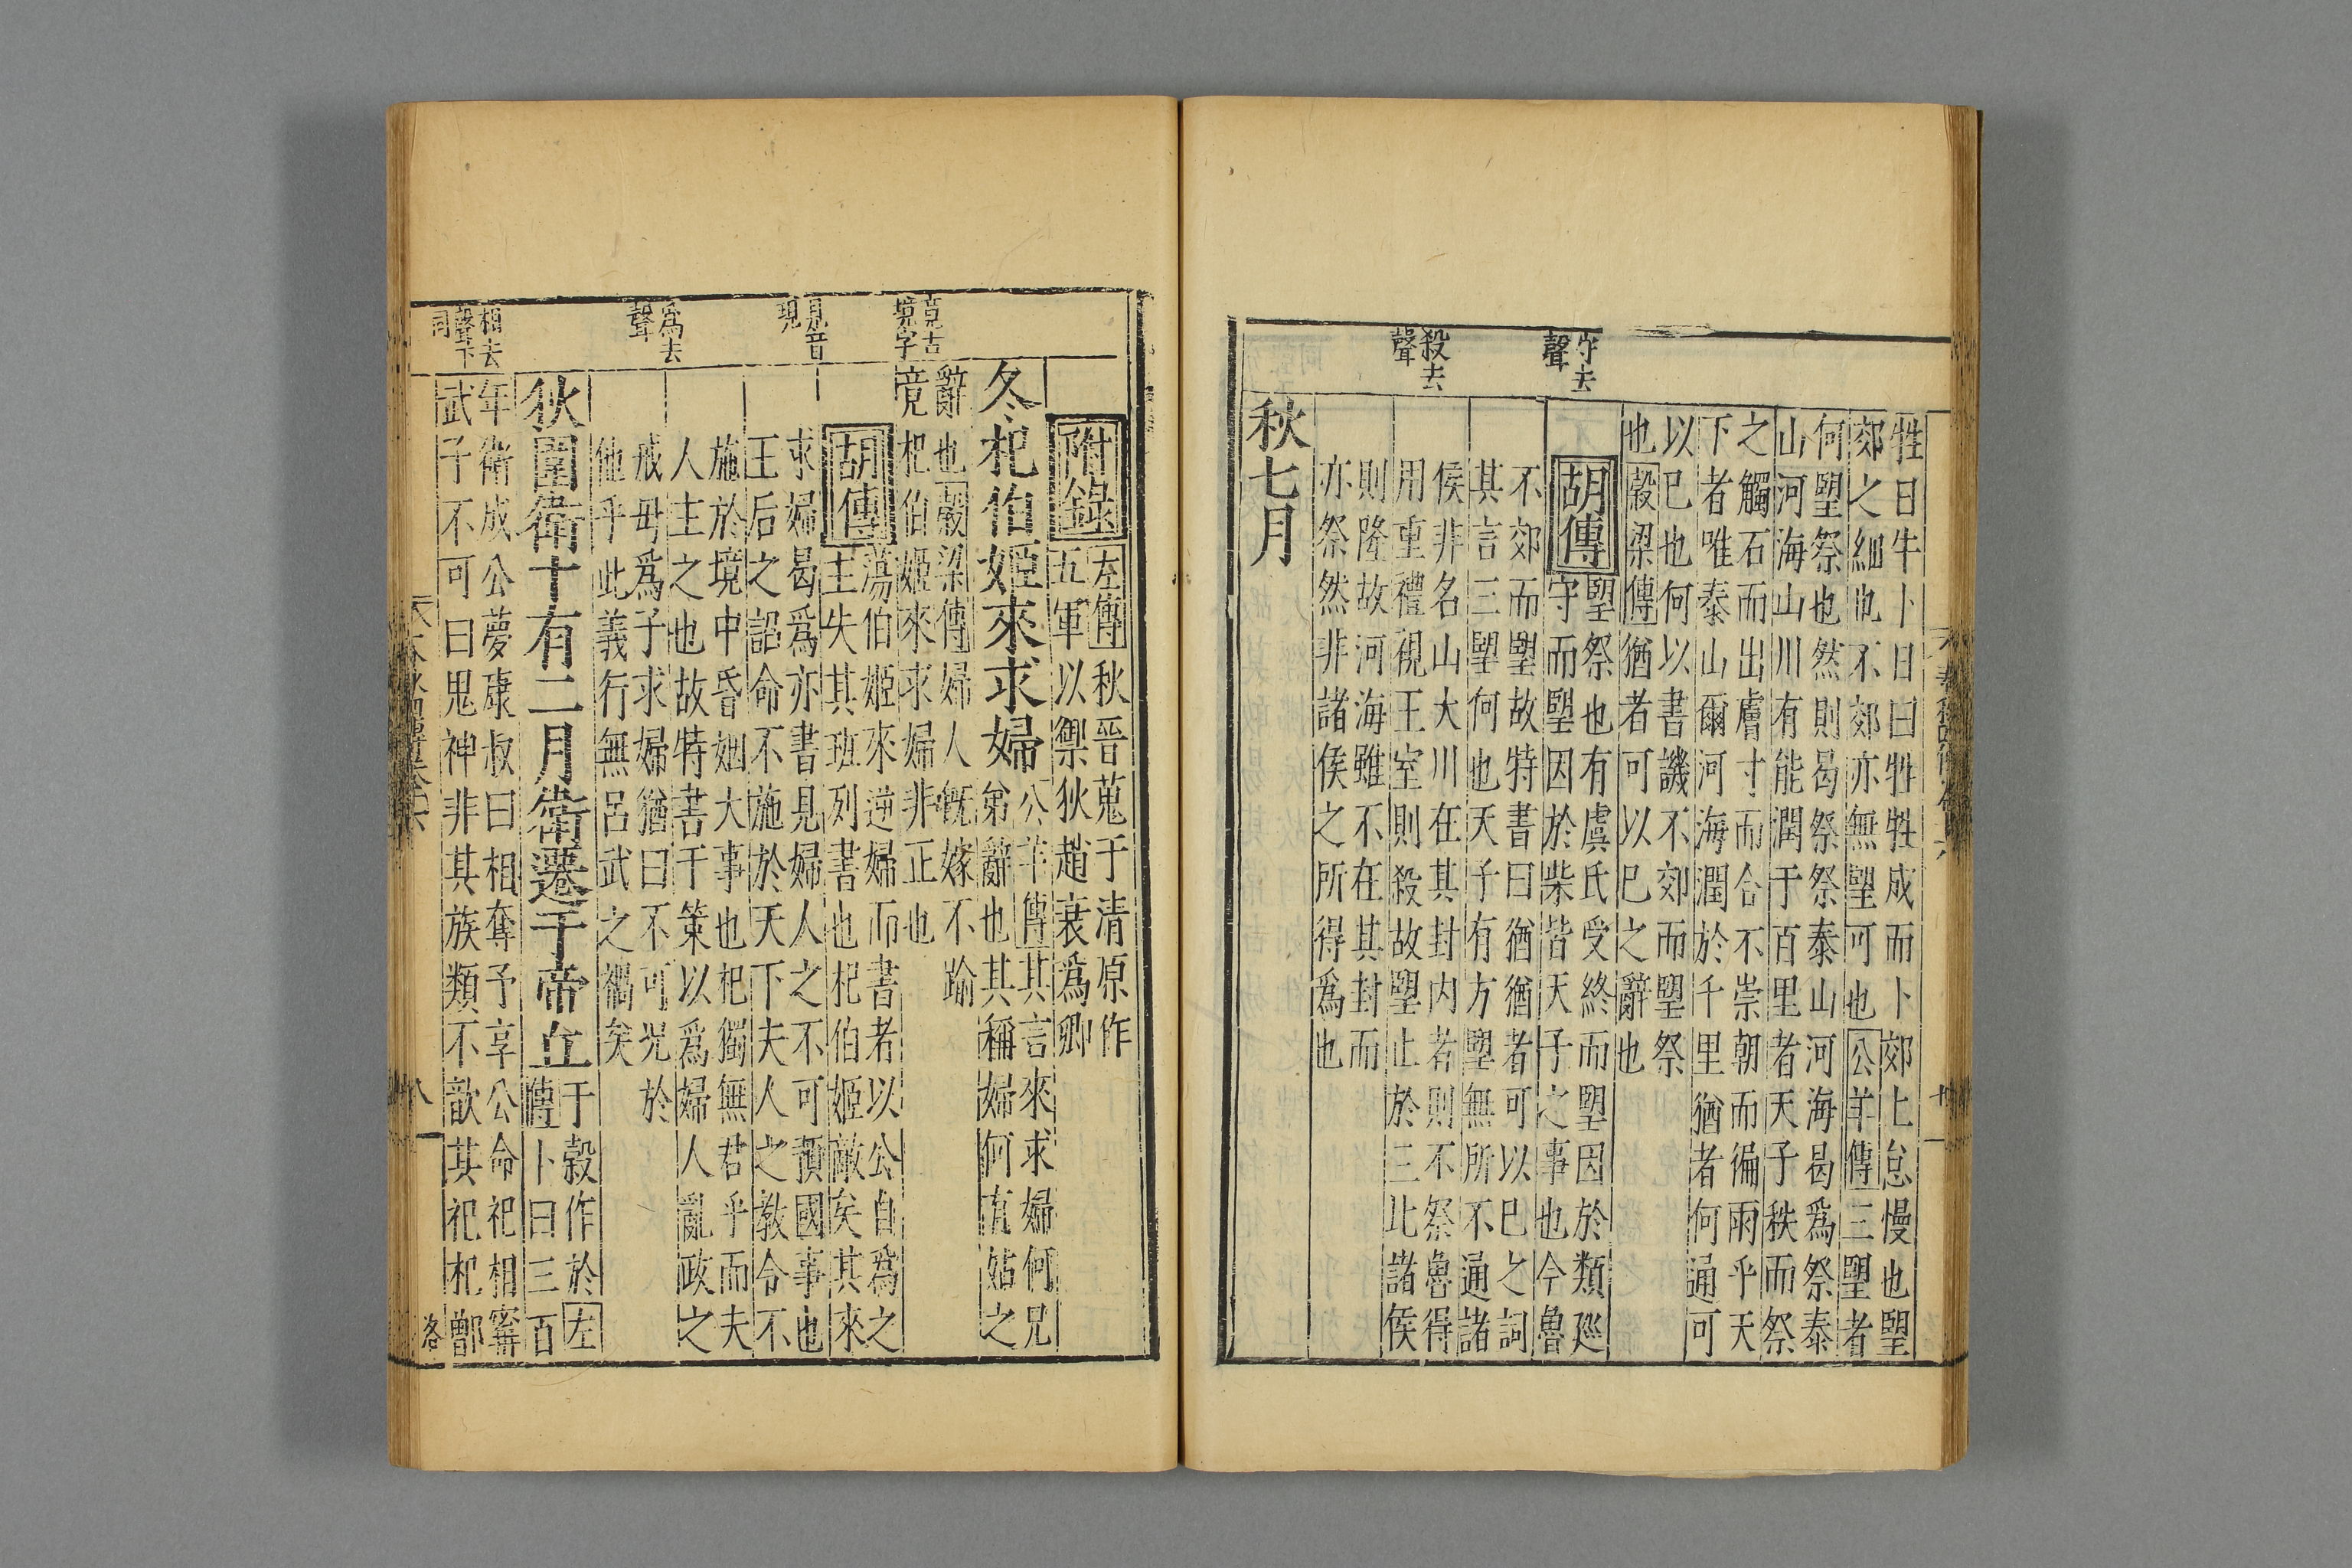 守去
聲
殺去
聲
牲日牛卜日曰牲牲成而卜郊上怠慢也望
郊之細也不郊亦無望可也公羊傳三望者
何望祭也然則曷祭祭泰山河海曷爲祭泰
山河海山川有能潤于百里者天子秩而祭
之觸石而出膚寸而合不崇朝而徧雨乎天
下者唯泰山爾河海潤於千里猶者何通可
以已也何以書譏不郊而望祭
也穀梁傳猶者可以已之辭也
胡傳
望祭也有虞氏受終而望因於類巡
守而望因於柴皆天子之事也今魯
不郊而望故特書曰猶猶者可以已之詞
其言三望何也天子有方望無所不通諸
侯非名山大川在其封内者則不祭魯得
用重禮視王室則殺故望止於三此諸侯
則隆故河海雖不在其封而
亦祭然非諸侯之所得爲也
秋七月
竟古
境字
見音
現
爲去
聲
相去
聲下
同
附錄
左傳秋晉蒐于清原作
五軍以禦狄趙衰爲卿
冬杞伯姬來求婦
公羊傳其言來求婦何兄
弟辭也其稱婦何有姑之
辭也穀梁傳婦人旣嫁不踰
竟杞伯姬來求婦非正也
胡傳
蕩伯姬來逆婦而書者以公自爲之
主失其班列書也杞伯姬敵矣其來
求婦曷爲亦書見婦人之不可預國事也
王后之詔命不施於天下夫人之教令不
施於境中昏姻大事也杞獨無君乎而夫
人主之也故特書于策以爲婦人亂政之
戒毋爲子求婦猶曰不可况於
他乎此義行無呂武之禍矣
狄圍衛十有二月衛遷于帝丘
于穀作於左
傳卜曰三百
年衛成公夢康叔曰相奪予享公命祀相甯
武子不可曰鬼神非其族類不歆其祀杞鄫
八
洛